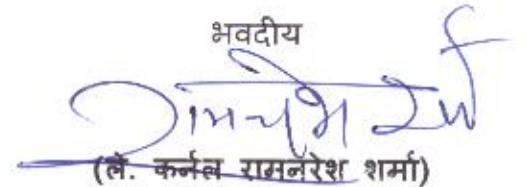 भवदीय
(ले. कर्नल रामनरेश शर्मा)